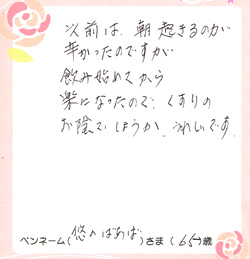 以前は、朝起きるのが
辛かったのですが
飲み始めてから
楽になったので、くすりの
お陰でしょうか、うれしいです。
ペンネーム(悠々ばあば)さま(65)歳